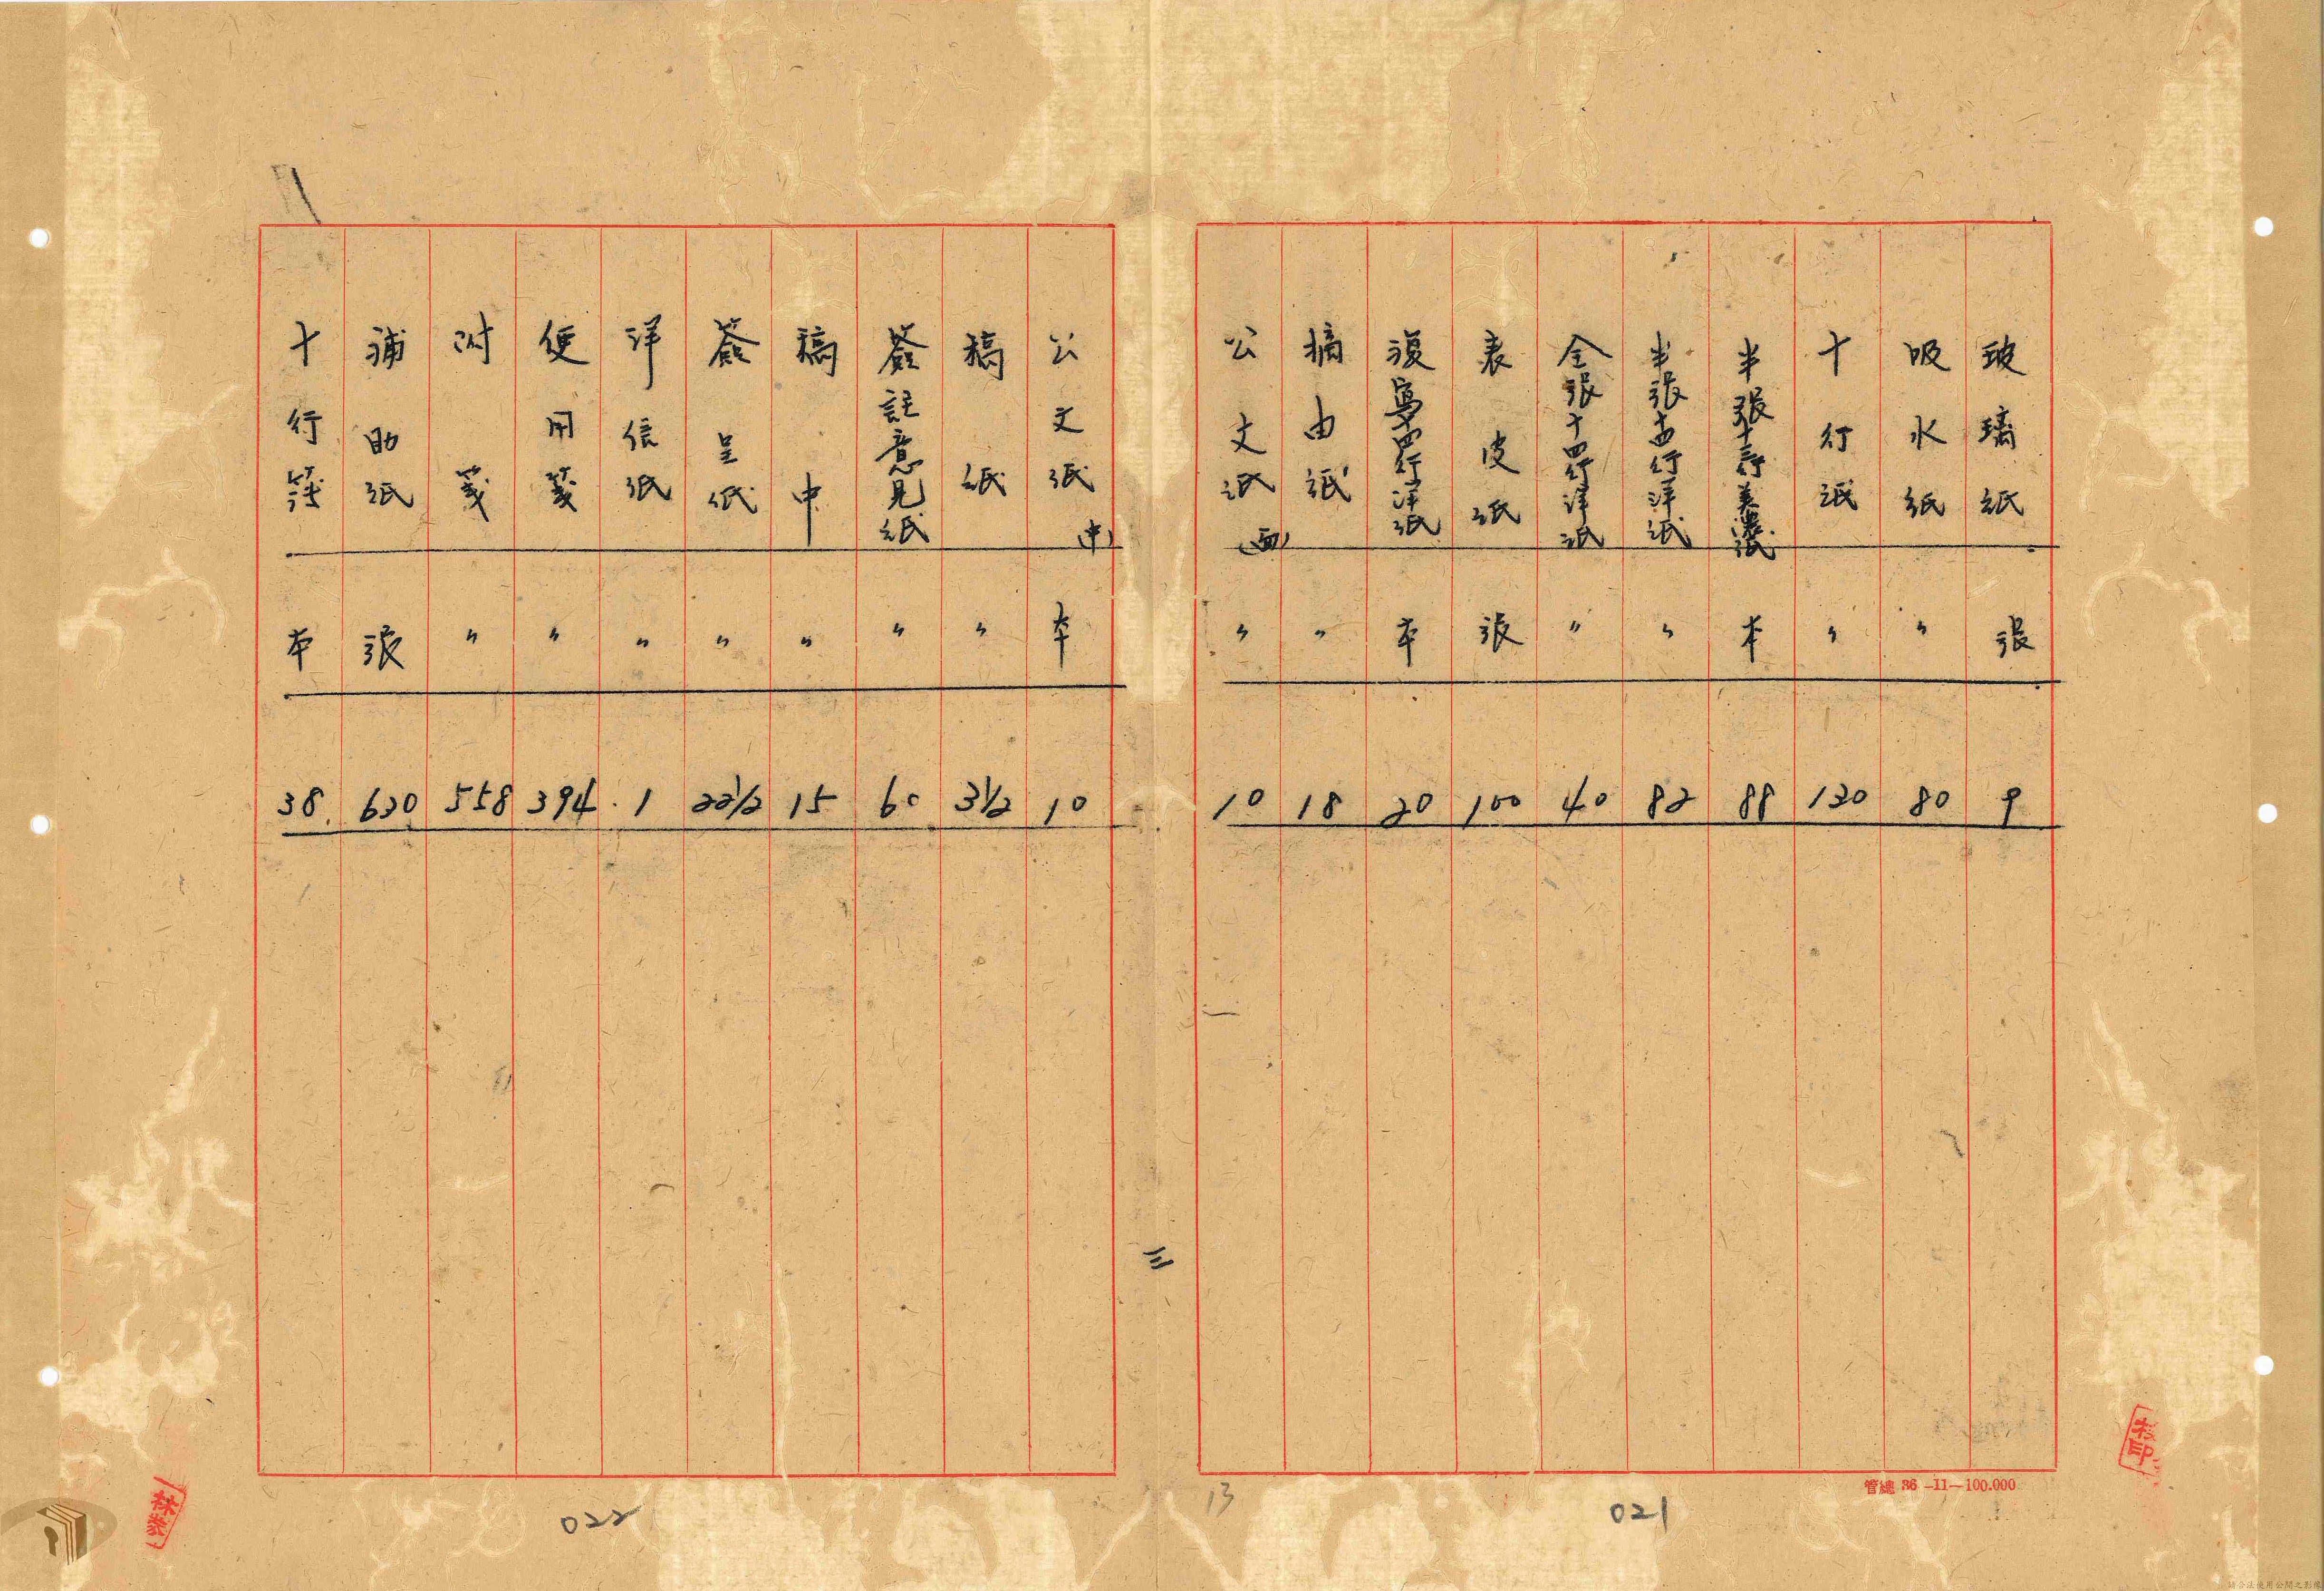 玻璃紙 張 9
吸水紙 〃 80
十行紙 〃 130
半張十三行美濃紙 本 88
半張十四行洋紙 〃 82
全張十四行洋紙 〃 40
表皮紙 張 100
複寫十四行洋紙 本 20
摘由紙 〃 18
公文紙(西) 〃 10
管總 36-11-100.000
021
13
三
公文紙(中) 本 10
稿紙 〃 3½
簽註意見紙 〃 60
稿中 〃 15
簽呈紙 〃 22½
洋信紙 〃 1
便用箋 〃 394
附箋 〃 558
補助紙 張 630
十行簿 本 38
022